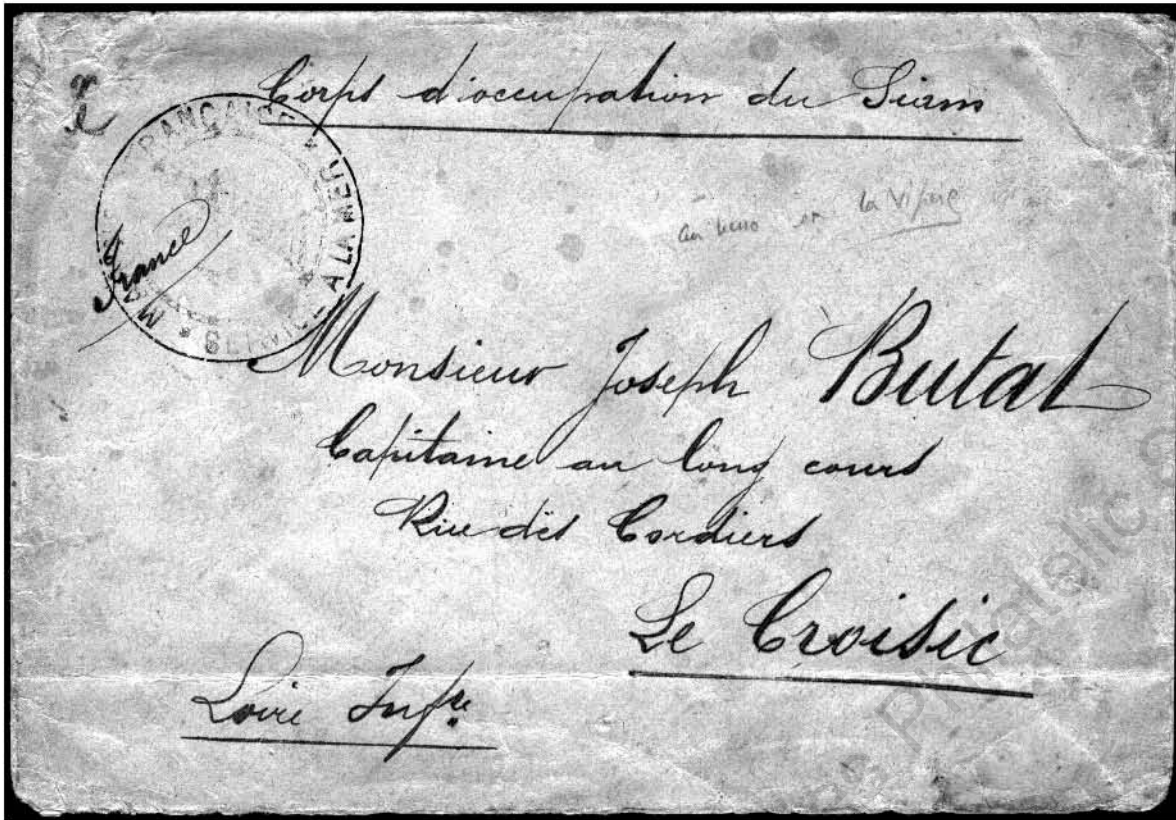 Corps d'occupation du Siam
FRANÇAISE * SERVICE A LA MER
France
au verso la Vipère
Monsieur Joseph Butat
Capitaine au long cours
Rue des Cordiers
Le Croisic
Loire Infre